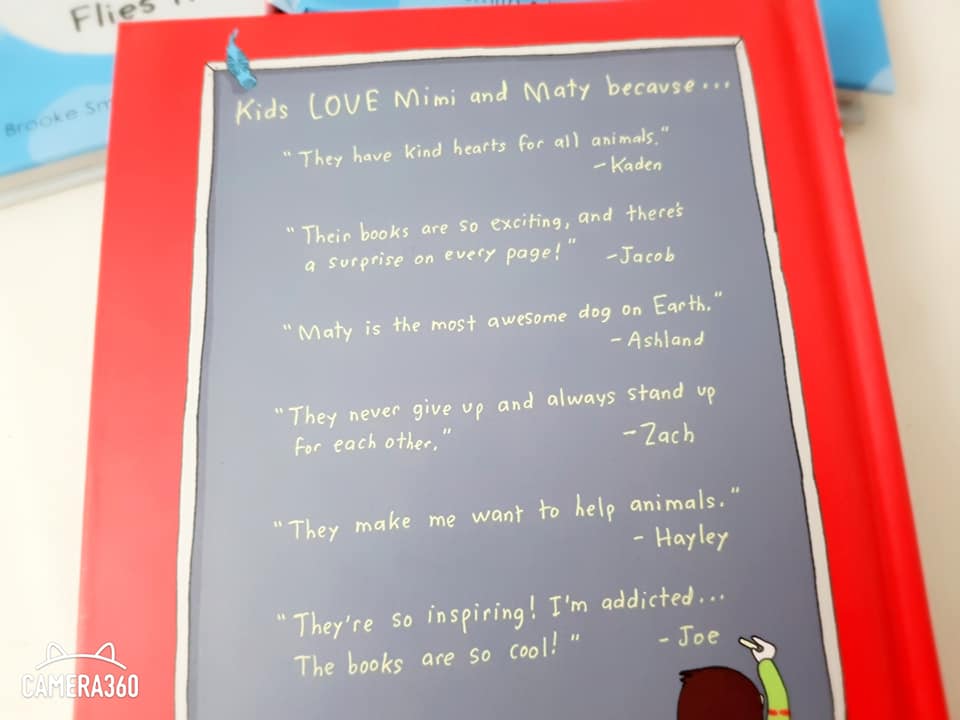 Flies
Brooke
Kids LOVE Mimi and Maty because...
"They have kind hearts for all animals."
-Kaden
"Their books are so exciting, and there's
a surprise on every page!" -Jacob
"Maty is the most awesome dog on Earth."
-Ashland
"They never give up and always stand up
for each other." -Zach
"They make me want to help animals."
-Hayley
"They're so inspiring! I'm addicted...
The books are so cool!" -Joe
CAMERA360